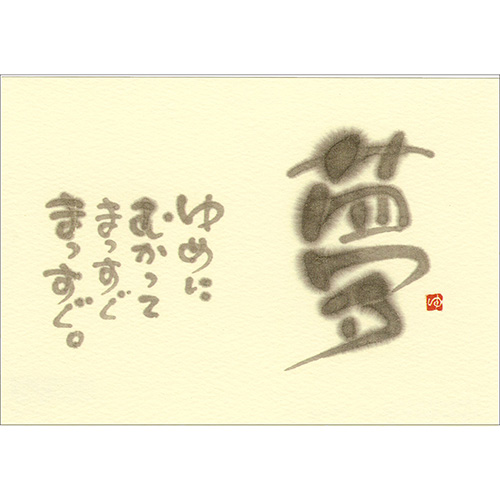 夢
ゆめに
むかって
まっすぐ
まっすぐ。
ゆ